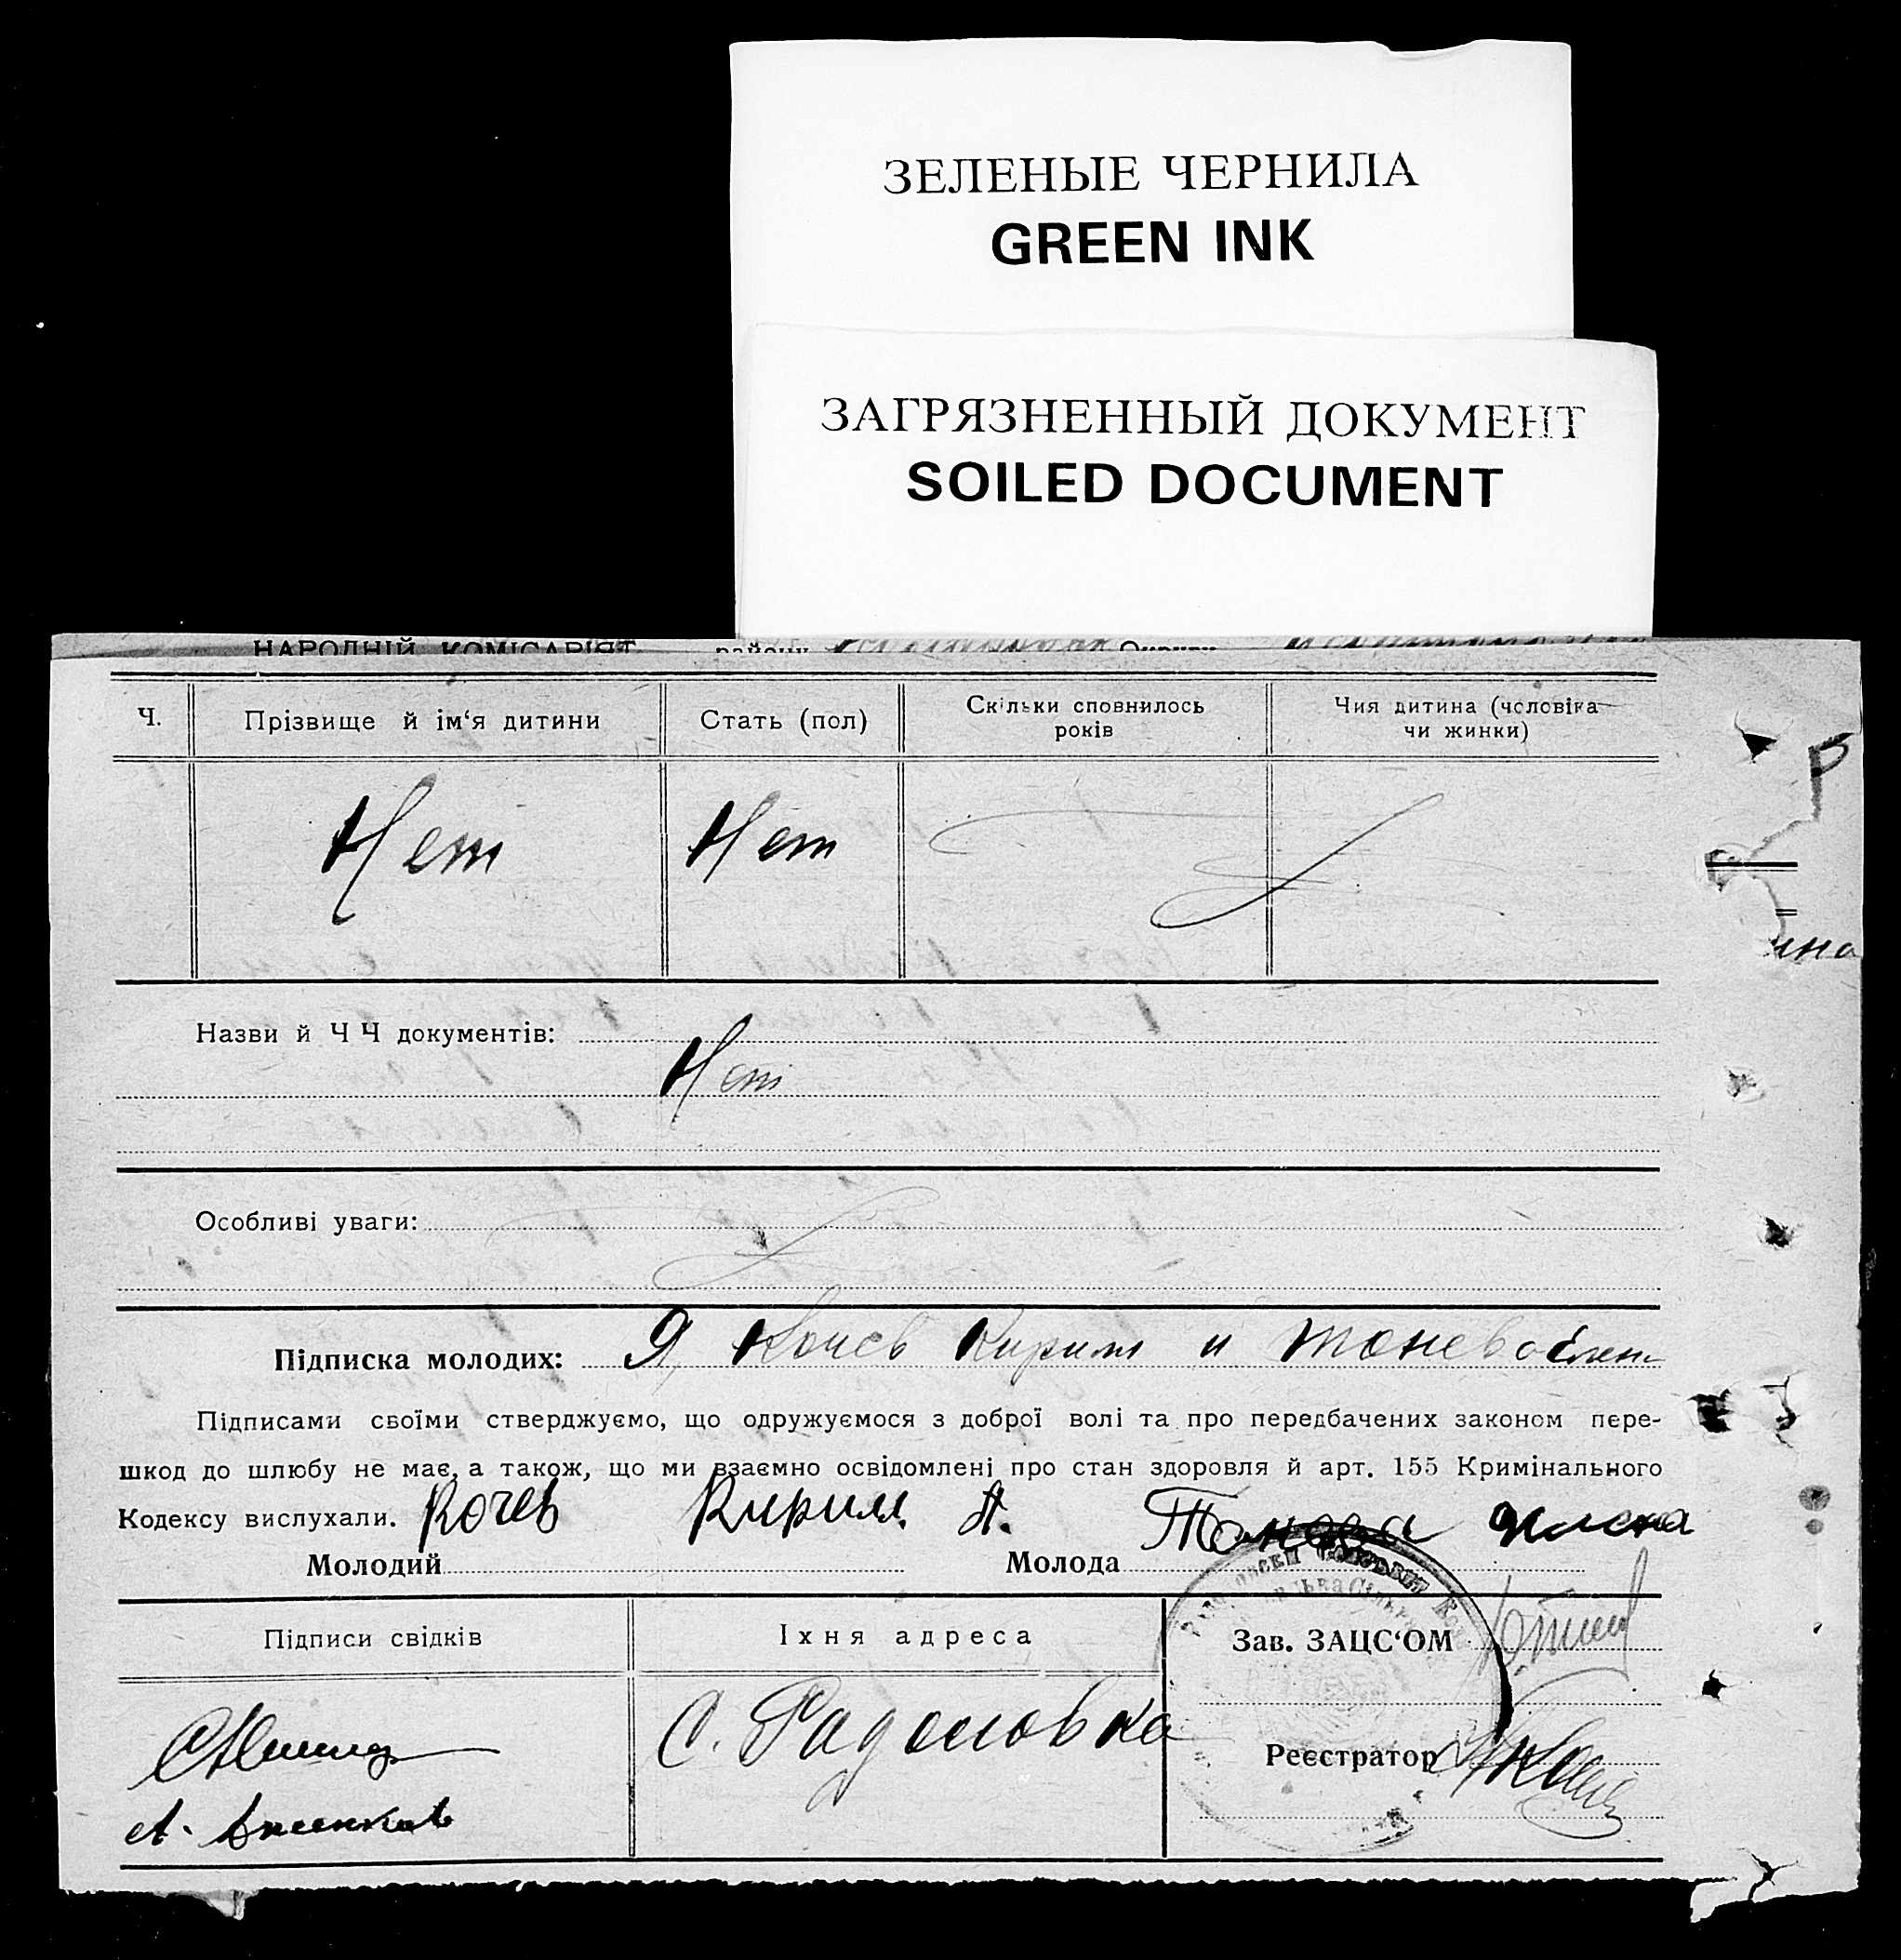 ЗЕЛЕНЫЕ ЧЕРНИЛА
GREEN INK
ЗАГРЯЗНЕННЫЙ ДОКУМЕНТ
SOILED DOCUMENT
НАРОДНІЙ КОМІСАРІЯТ району Округи
Ч. Прізвище й ім‘я дитини Стать (пол) Скільки сповнилось років Чия дитина (чоловіка чи жинки)
Нет Нет
Назви й Ч Ч документів:
Нет
Особливі уваги:
Підписка молодих: Я, Кочев Кирилл и Тонева Елен
Підписами своїми стверджуємо, що одружуємося з доброї волі та про передбачених законом пере-
шкод до шлюбу не має, а також, що ми взаємно освідомлені про стан здоровля й арт. 155 Кримінального
Кодексу вислухали. Кочев Кирилл А. Тонева
Молодий Молода
Підписи свідків Їхня адреса Зав. ЗАЦС‘ОМ
С. Радоловка
Реєстратор